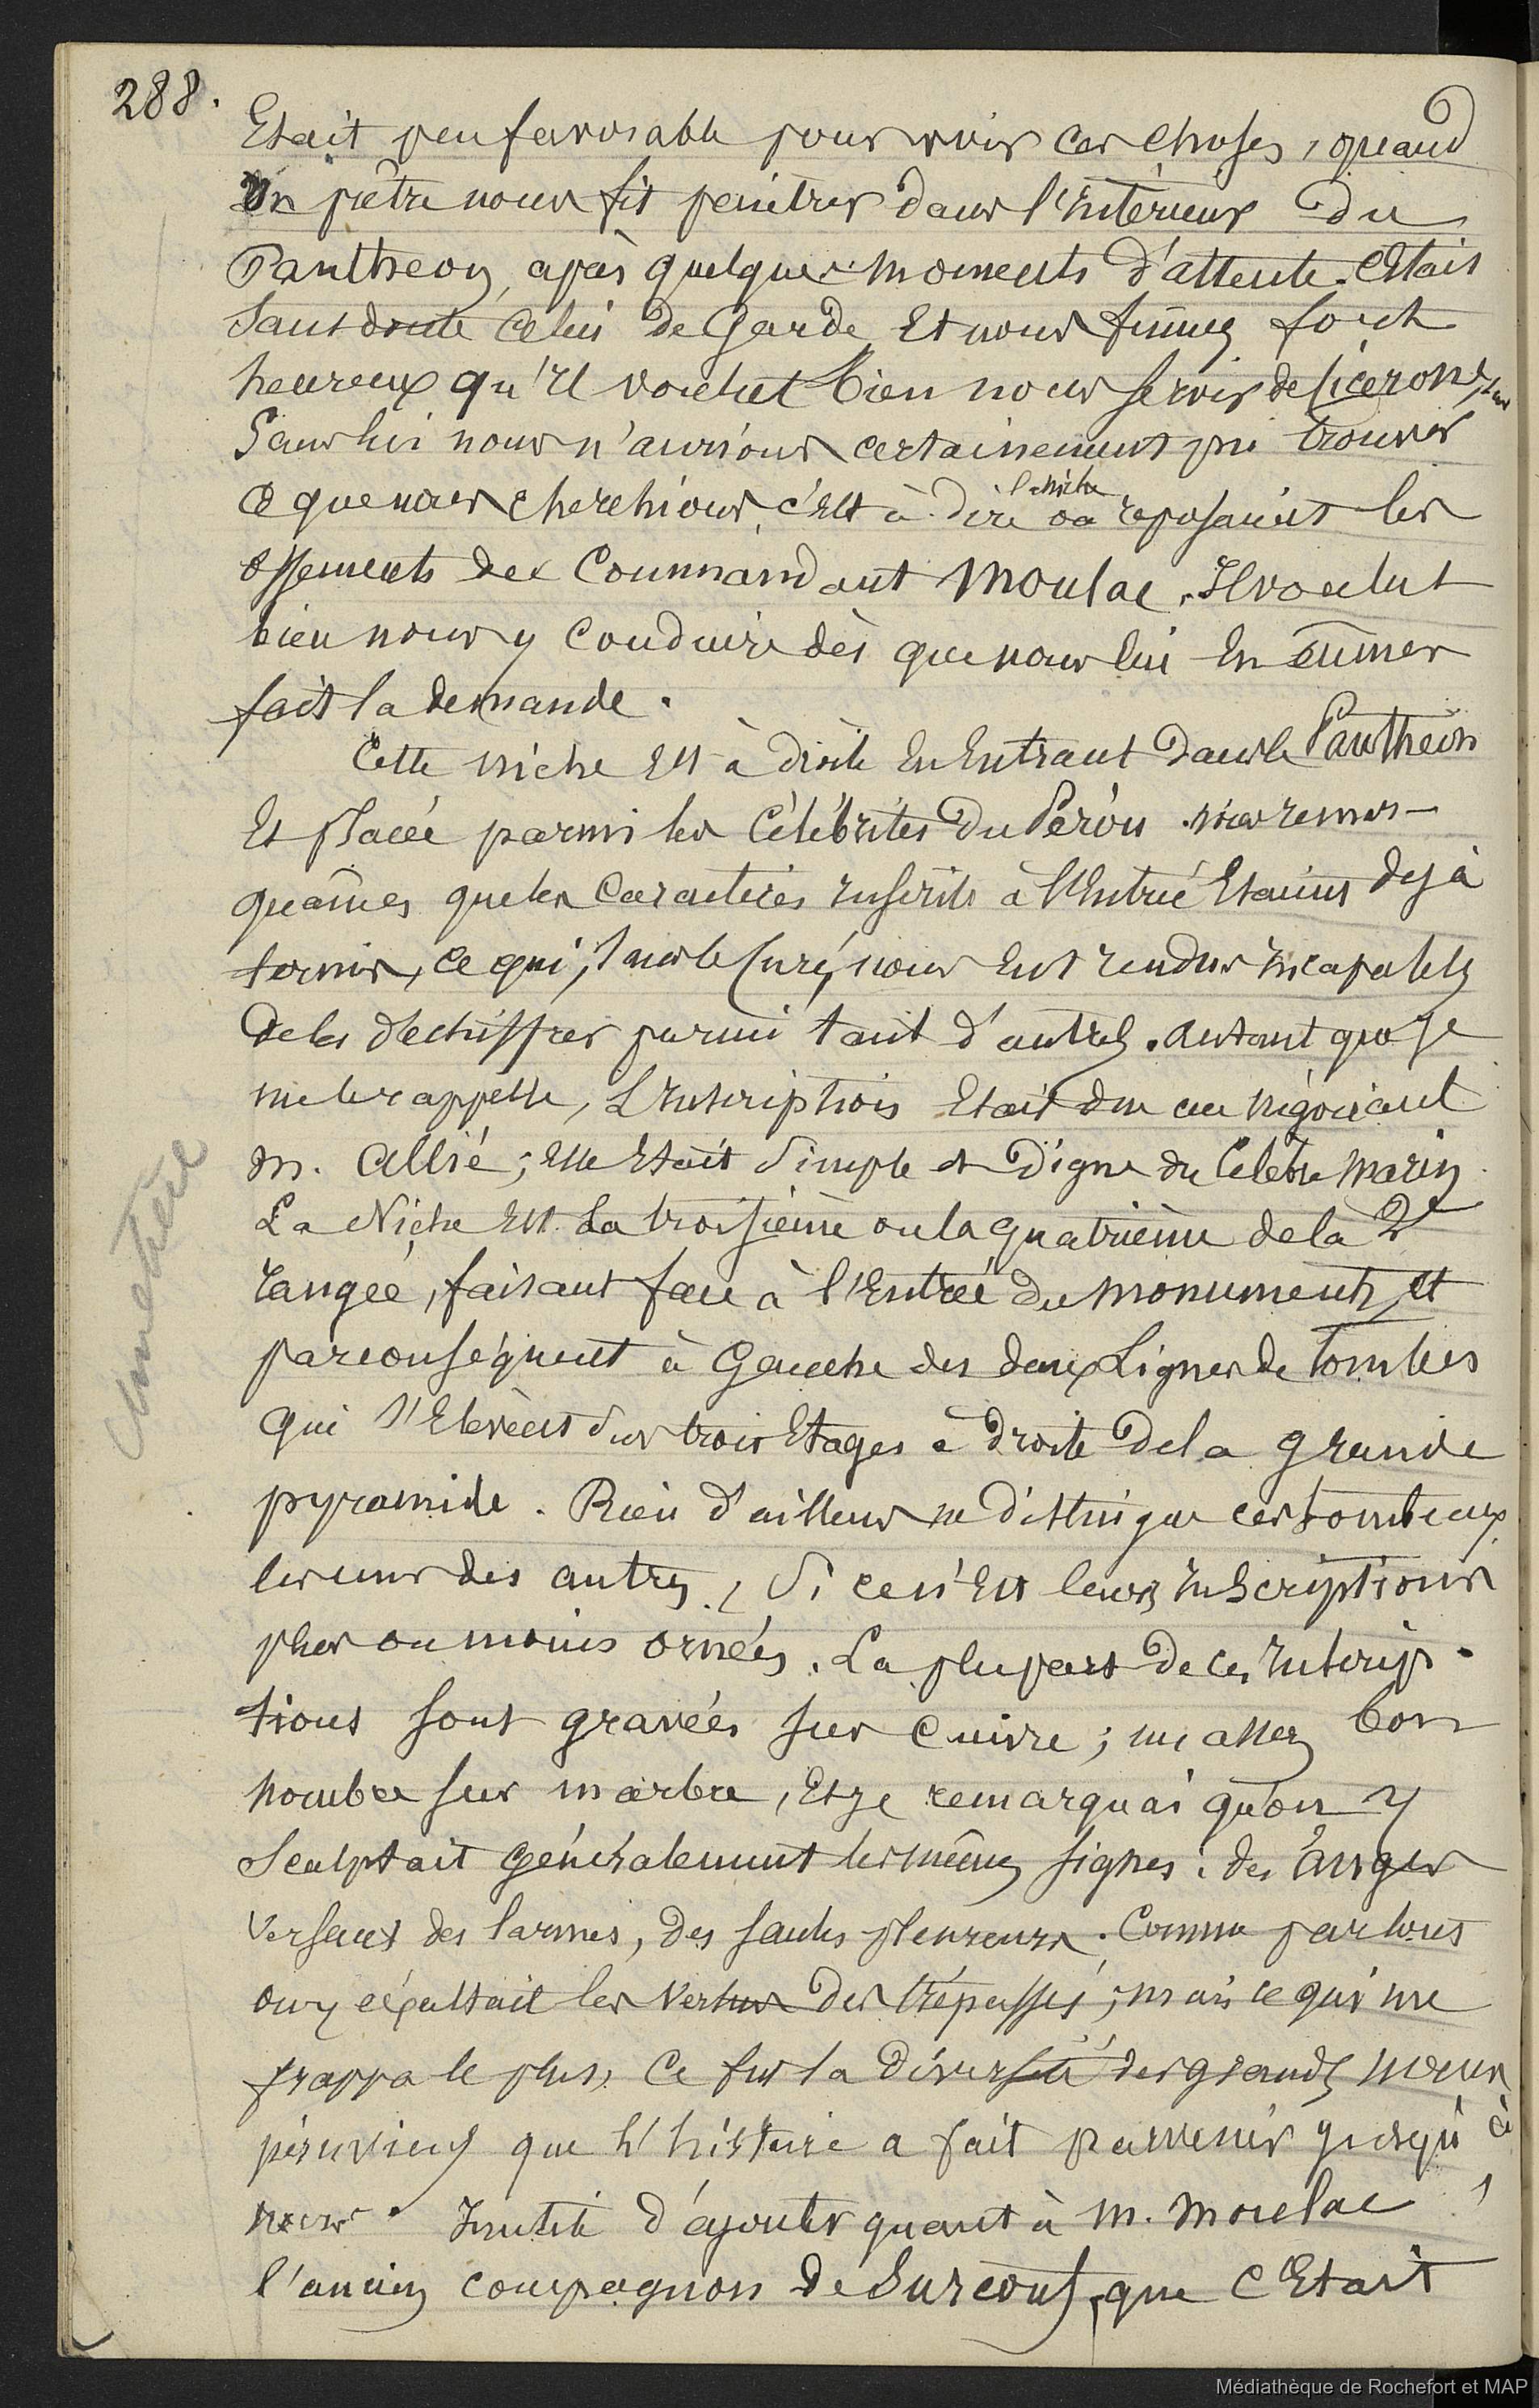 288.
Etait peu favorable pour voir ces choses, quand
un prêtre nous fit pénétrer dans l'Intérieur du
Pantheon, après quelques moments d'attente. C'Etait
Sans doute celui de Garde Et nous fûmes fort
heureux qu'Il voulut bien nous servir de Ciceron,
Sans lui nous n'aurions certainement pu trouver
ce que nous cherchions, c'Est à dire la niche où reposaient les
ossements du Commandant Moulac. Il voulut
bien nous y conduire dès que nous lui En eûmes
fait la demande.
Cette niche Est à droite En Entrant dans le Pantheon
Et placée parmi les Célébrités du Pérou. Nous remar-
quâmes que les Caractères Inscrits à l'Entrée Etaient dejà
ternis, ce qui, sans le Curé, nous Eut rendus Incapables
de les déchiffrer parmi tant d'autres. Autant que Je
me le rappelle, L'Inscription Etait due au négociant
M. Allié; Elle Etait Simple et Digne du Celèbre Marin.
La Niche Est La troisième ou la quatrième de la 2e
rangée, faisant face à l'Entrée du Monument, et
par conséquent à Gauche des deux Lignes de Tombes
qui S'Elèvent sur trois Etages à droite de la grande
pyramide. Rien d'ailleurs ne distingue ces tombeaux
les uns des autres, Si ce n'Est leurs Inscriptions
plus ou moins ornées. La plupart de ces Inscrip-
tions sont gravées sur Cuivre; un assez bon
nombre sur marbre, Et Je remarquai qu'on y
Sculptait généralement les mêmes signes: des Anges
versant des larmes, des saules pleureurs. Comme partout
on y exaltait les vertus des trépassés; mais ce qui me
frappa le plus, Ce fut la diversité des grands noms
péruviens que l'histoire a fait parvenir jusqu'à
nous. Inutile d'ajouter quant à M. Moulac,
l'ancien compagnon de Surcouf, que c'Etait
Cimetière
Médiathèque de Rochefort et MAP